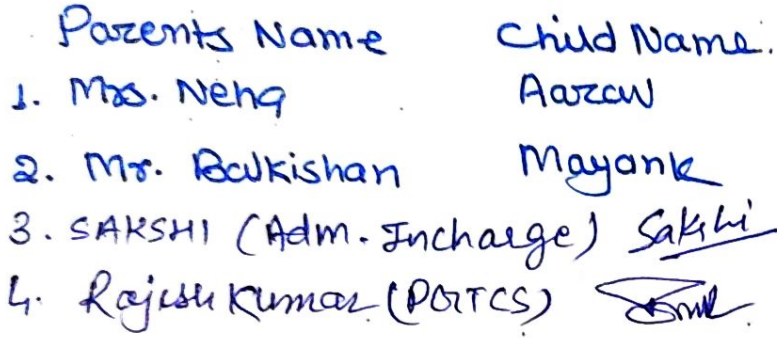 Parents Name Child Name.
1. Mrs. Neha Aarav
2. Mr. Balkishan Mayank
3. SAKSHI (Adm. Incharge) Sakshi
4. Rajesh Kumar (PGTCS)